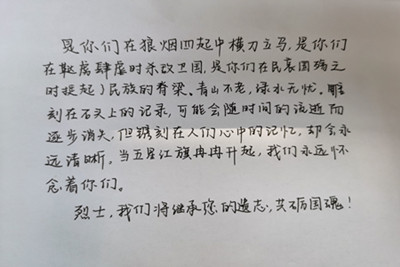 是你们在狼烟四起中横刀立马,是你们
在鞑虏肆虐时杀敌卫国,是你们在民哀国殇之
时挺起了民族的脊梁。青山不老,绿水无忧。雕
刻在石头上的记录,可能会随时间的流逝而
逐步消失,但镌刻在人们心中的记忆,却会永
远清晰。当五星红旗冉冉升起,我们永远怀
念着你们。
烈士,我们将继承您的遗志,共砺国魂!